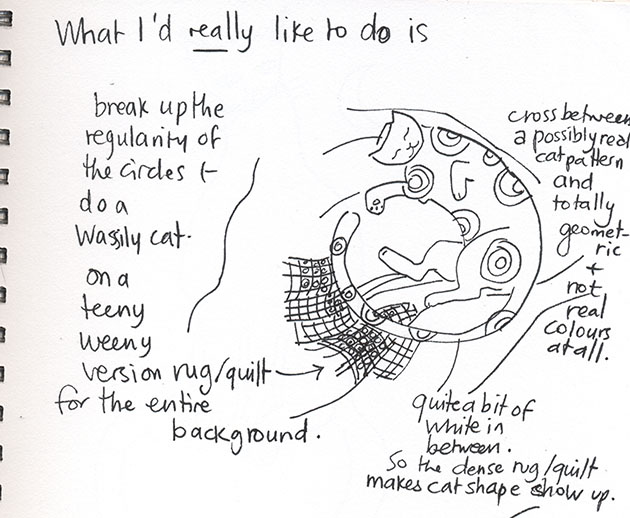 What I'd really like to do is
break up the
regularity of
the circles (-
do a
Wassily cat.
on a
teeny
weeny
version rug/quilt
for the entire
background.
cross between
a possibly real
cat pattern
and
totally
geomet-
ric
+
not
real
colours
at all.
quite a bit of
white in
between.
So the dense rug/quilt
makes cat shape show up.